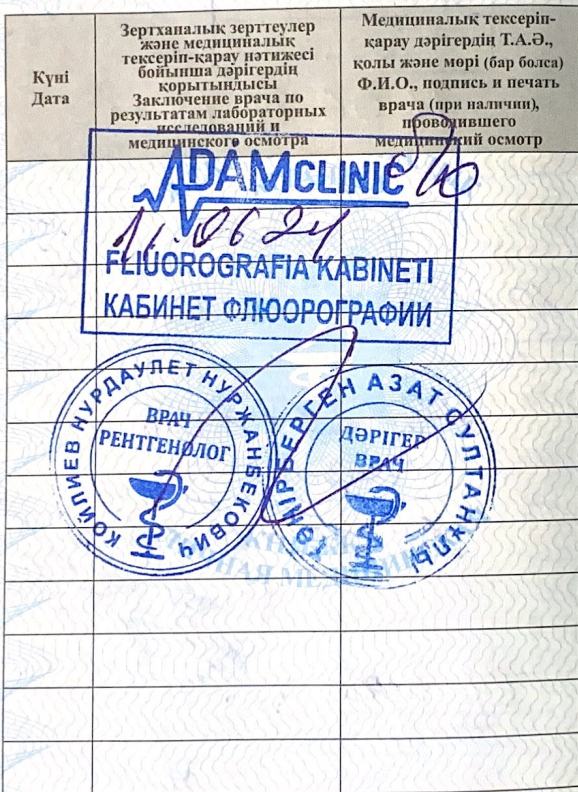 Күні
Дата
Зертханалық зерттеулер
және медициналық
тексеріп-қарау нәтижесі
бойынша дәрігердің
қорытындысы
Заключение врача по
результатам лабораторных
исследований и
медицинского осмотра
Медициналық тексеріп-
қарау дәрігердің Т.А.Ә.,
қолы және мөрі (бар болса)
Ф.И.О., подпись и печать
врача (при наличии),
проводившего
медицинский осмотр
ADAMCLINIC
11.06 24
FLIUOROGRAFIA KABINETI
КАБИНЕТ ФЛЮОРОГРАФИИ
КОЙЛИЕВ НУРДАУЛЕТ НУРЖАНБЕКОВИЧ
ВРАЧ
РЕНТГЕНОЛОГ
ТӨҢІРБЕРГЕН АЗАТ СУЛТАНҰЛЫ
ДӘРІГЕР
ВРАЧ